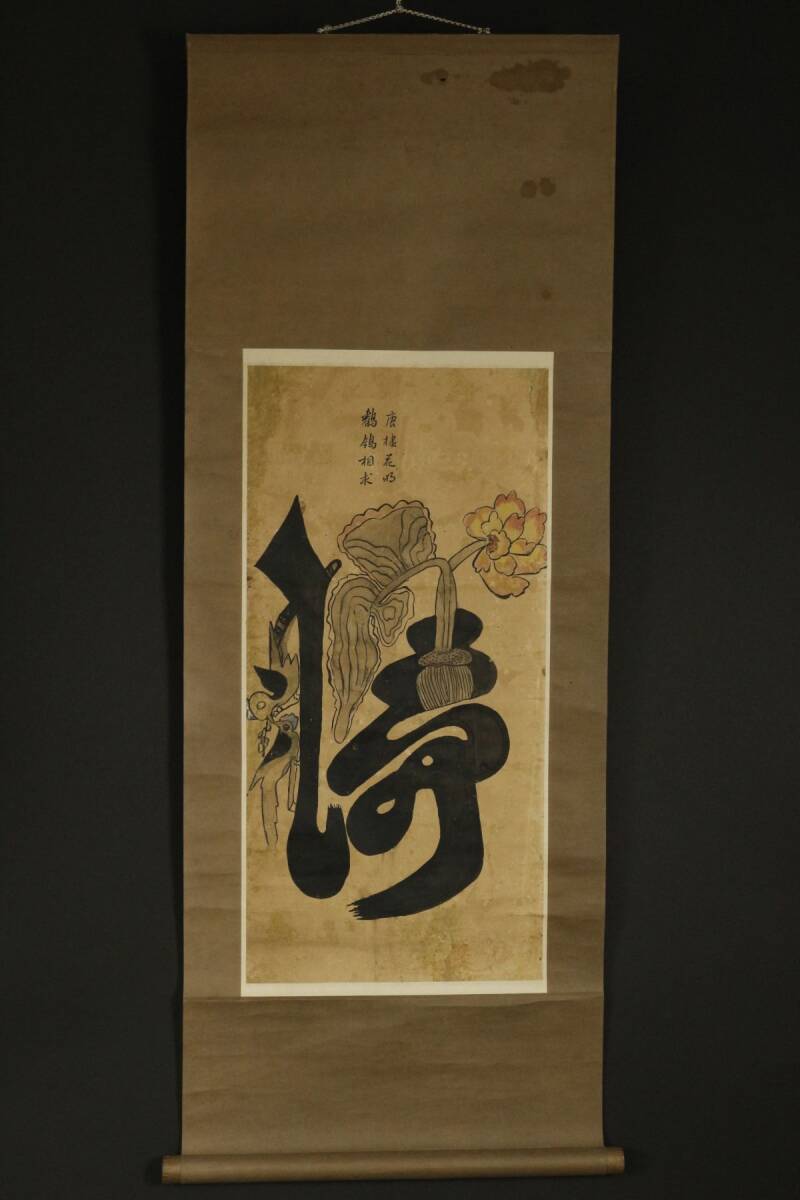 唐棣花明
鶺鴒相求
悌